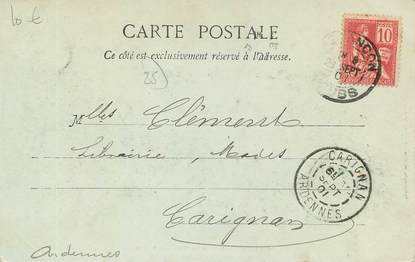 10 €
CARTE POSTALE
Ce côté est exclusivement réservé à l'adresse.
25)
10
SEPT
01
Melles Clément
Librairie, Modes
Carignan
CARIGNAN
SEPT
01
ARDENNES
Ardennes